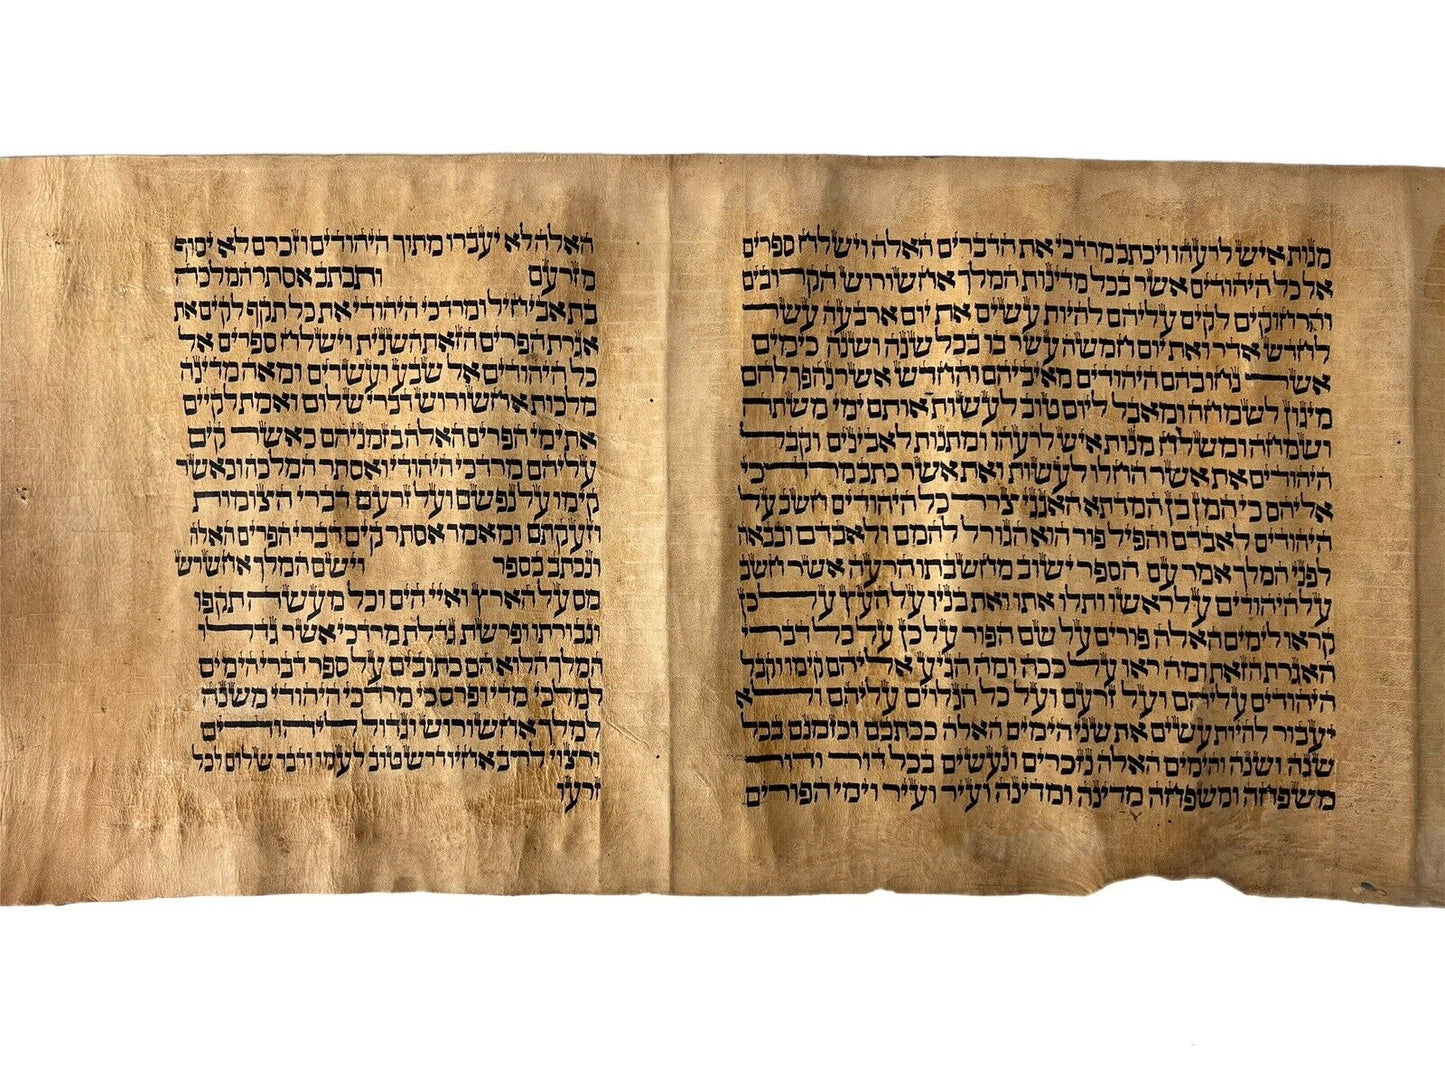 מנות איש לרעהו ויכתב מרדכי את הדברים האלה וישלח ספרים
אל כל היהודים אשר בכל מדינות המלך אחשורוש הקרובים
והרחוקים לקים עליהם להיות עשים את יום ארבעה עשר
לחדש אדר ואת יום חמשה עשר בו בכל שנה ושנה כימים
אשר נחו בהם היהודים מאיביהם והחדש אשר נהפך להם
מיגון לשמחה ומאבל ליום טוב לעשות אותם ימי משתה
ושמחה ומשלח מנות איש לרעהו ומתנות לאבינים וקבל
היהודים את אשר החלו לעשות ואת אשר כתב מרדכי
אליהם כי המן בן המדתא האגגי צרר כל היהודים חשב על
היהודים לאבדם והפיל פור הוא הגורל להמם ולאבדם ובבאה
לפני המלך אמר עם הספר ישוב מחשבתו הרעה אשר חשב
על היהודים על ראשו ותלו אתו ואת בניו על העץ על כן
קראו לימים האלה פורים על שם הפור על כן על כל דברי
האגרת הזאת ומה ראו על ככה ומה הגיע אליהם קימו וקבל
היהודים עליהם ועל זרעם ועל כל הנלוים עליהם ולא
יעבור להיות עשים את שני הימים האלה ככתבם וכזמנם בכל
שנה ושנה והימים האלה נזכרים ונעשים בכל דור ודור
משפחה ומשפחה מדינה ומדינה ועיר ועיר וימי הפורים
האלה לא יעברו מתוך היהודים וזכרם לא יסוף
מזרעם ותכתב אסתר המלכה
בת אביחיל ומרדכי היהודי את כל תקף לקים את
אגרת הפרים הזאת השנית וישלח ספרים אל
כל היהודים אל שבע ועשרים ומאה מדינה
מלכות אחשורוש דברי שלום ואמת לקיים
את ימי הפרים האלה בזמניהם כאשר קים
עליהם מרדכי היהודי ואסתר המלכה וכאשר
קימו על נפשם ועל זרעם דברי הצומות
וזעקתם ומאמר אסתר קים דברי הפרים האלה
ונכתב בספר וישם המלך אחשרש
מס על הארץ ואיי הים וכל מעשה תקפו
וגבורתו ופרשת גדלת מרדכי אשר גדלו
המלך הלוא הם כתובים על ספר דברי הימים
למלכי מדי ופרס כי מרדכי היהודי משנה
למלך אחשורוש וגדול ליהודים
ורצוי לרב אחיו דרש טוב לעמו ודבר שלום לכל
זרעו